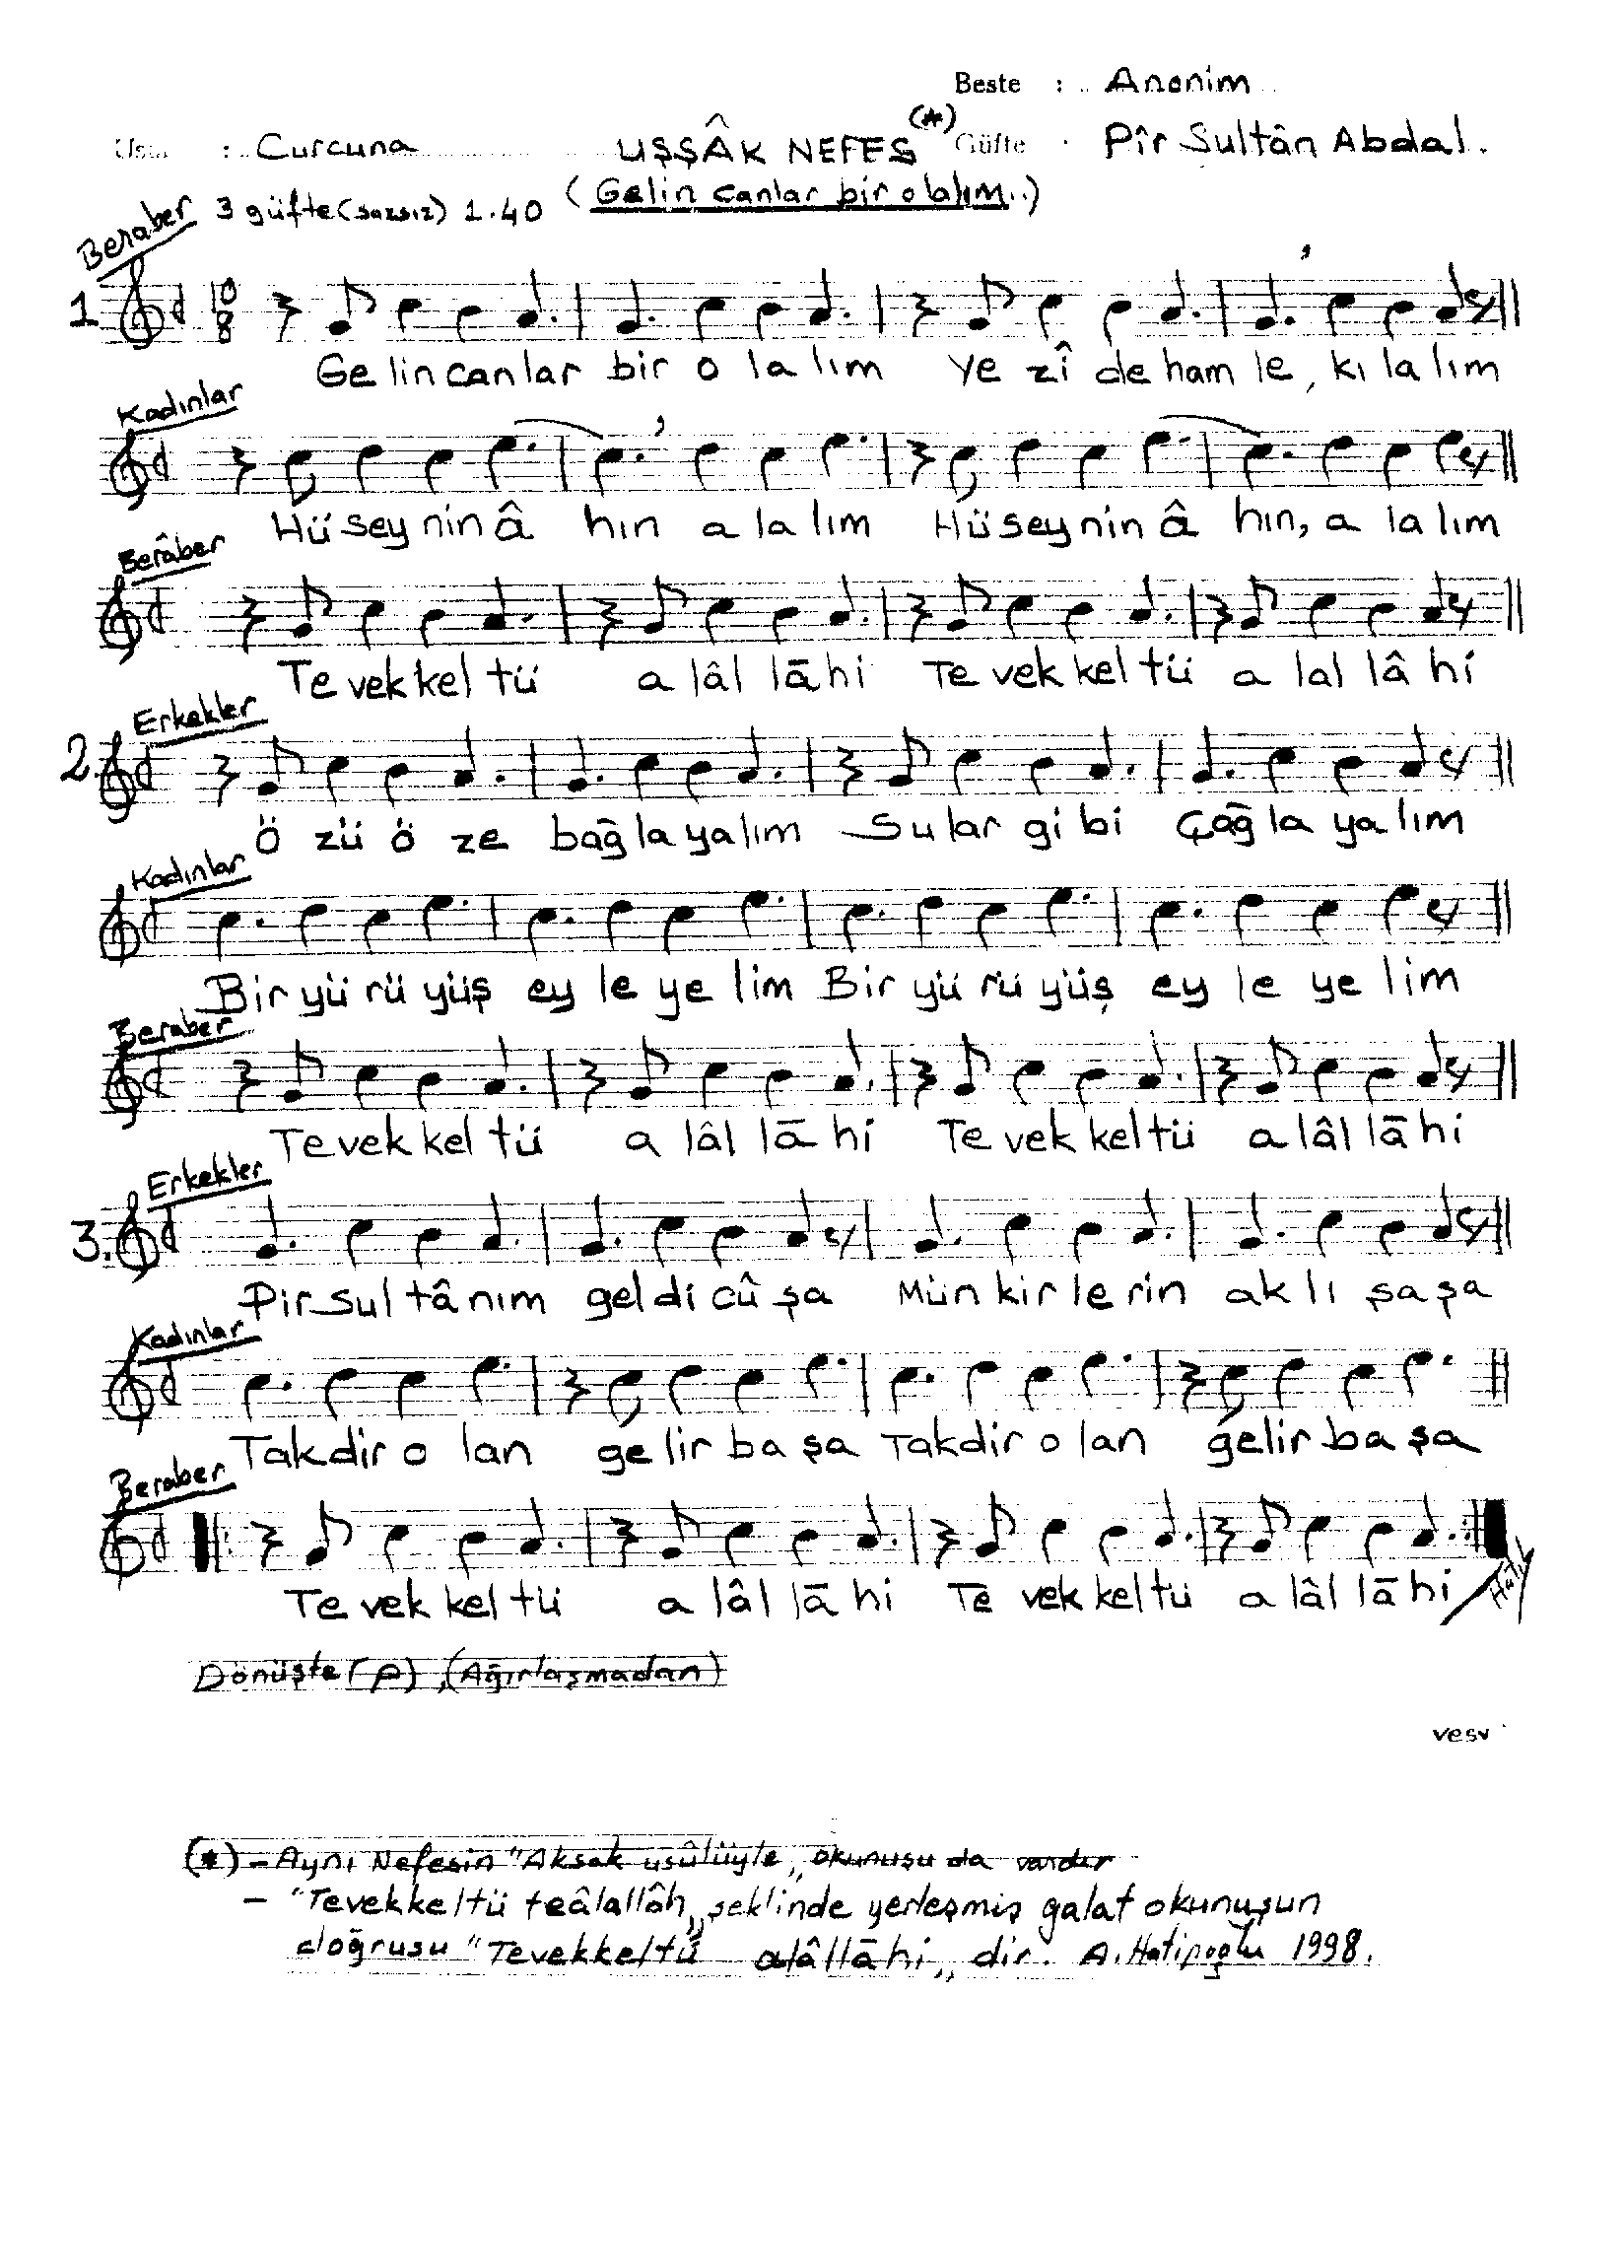 Beste : Anonim
Usûl : Curcuna UŞŞÂK NEFES (*) Güfte : Pîr Sultân Abdal.
Beraber 3 güfte (sazsız) 1.40 (Gelin canlar bir olalım..)
1 10 8
Ge lin can lar bir o la lım Ye zî de ham le, kı la lım
Kadınlar
Hü sey nin â hın a la lım Hü sey nin â hın, a la lım
Berâber
Te vek kel tü a lâl lā hi Te vek kel tü a lal lâ hi
2. Erkekler
Ö zü ö ze bağ la ya lım Su lar gi bi Çağ la ya lım
Kadınlar
Bir yü rü yüş ey le ye lim Bir yü rü yüş ey le ye lim
Beraber
Te vek kel tü a lâl lā hi Te vek kel tü a lâl lā hi
3. Erkekler
Pir sul tâ nım gel di cû şa Mün kir le rin ak lı şa şa
Kadınlar
Tak dir o lan ge lir ba şa Tak dir o lan ge lir ba şa
Beraber
Te vek kel tü a lâl lā hi Te vek kel tü a lâl lā hi
Dönüşte (p), (Ağırlaşmadan)
(*) - Aynı Nefesin "Aksak usûlüyle,, okunuşu da vardır
- "Tevekkeltü teâlallâh,, şeklinde yerleşmiş galat okunuşun
doğrusu "Tevekkeltü alâllāhi,, dir. A. Hatipoğlu 1998.